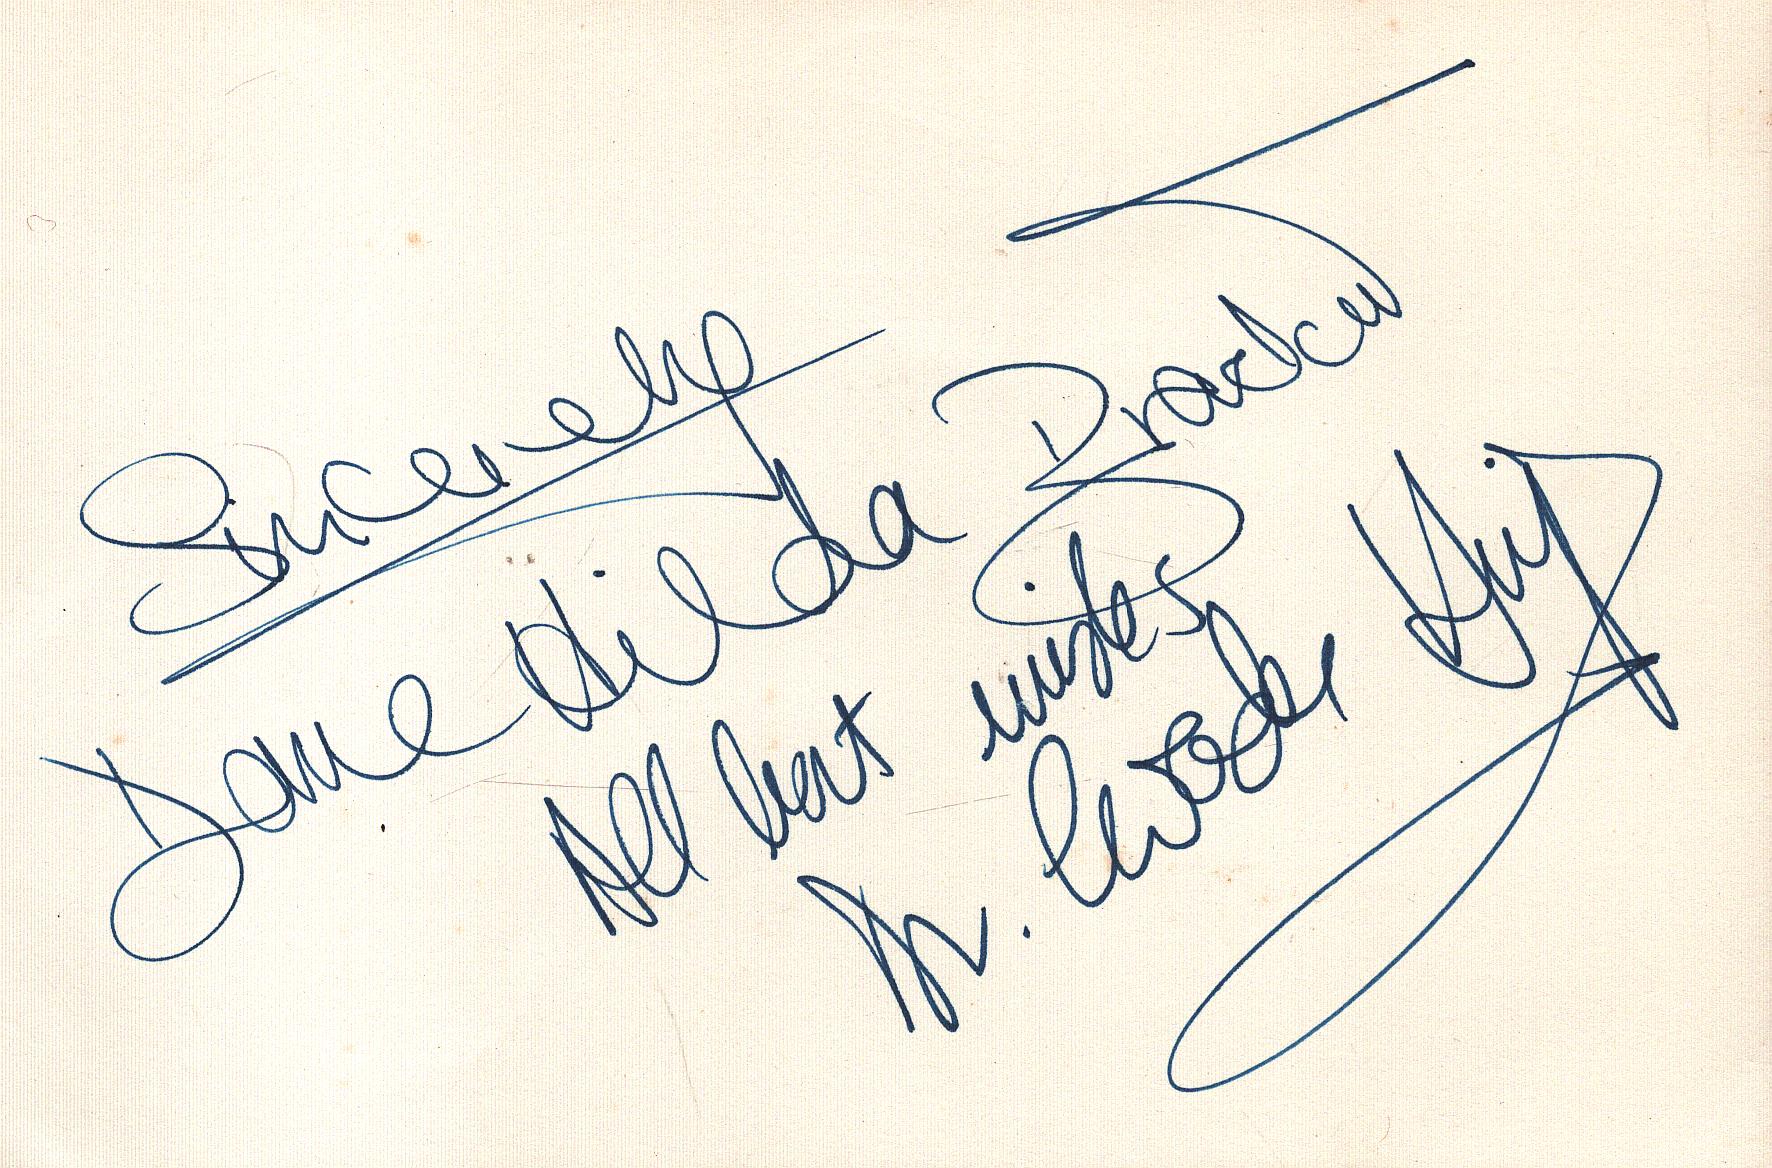 Sincerely
Dame Hilda Bracket
All best wishes
Dr. Evadne Hinge